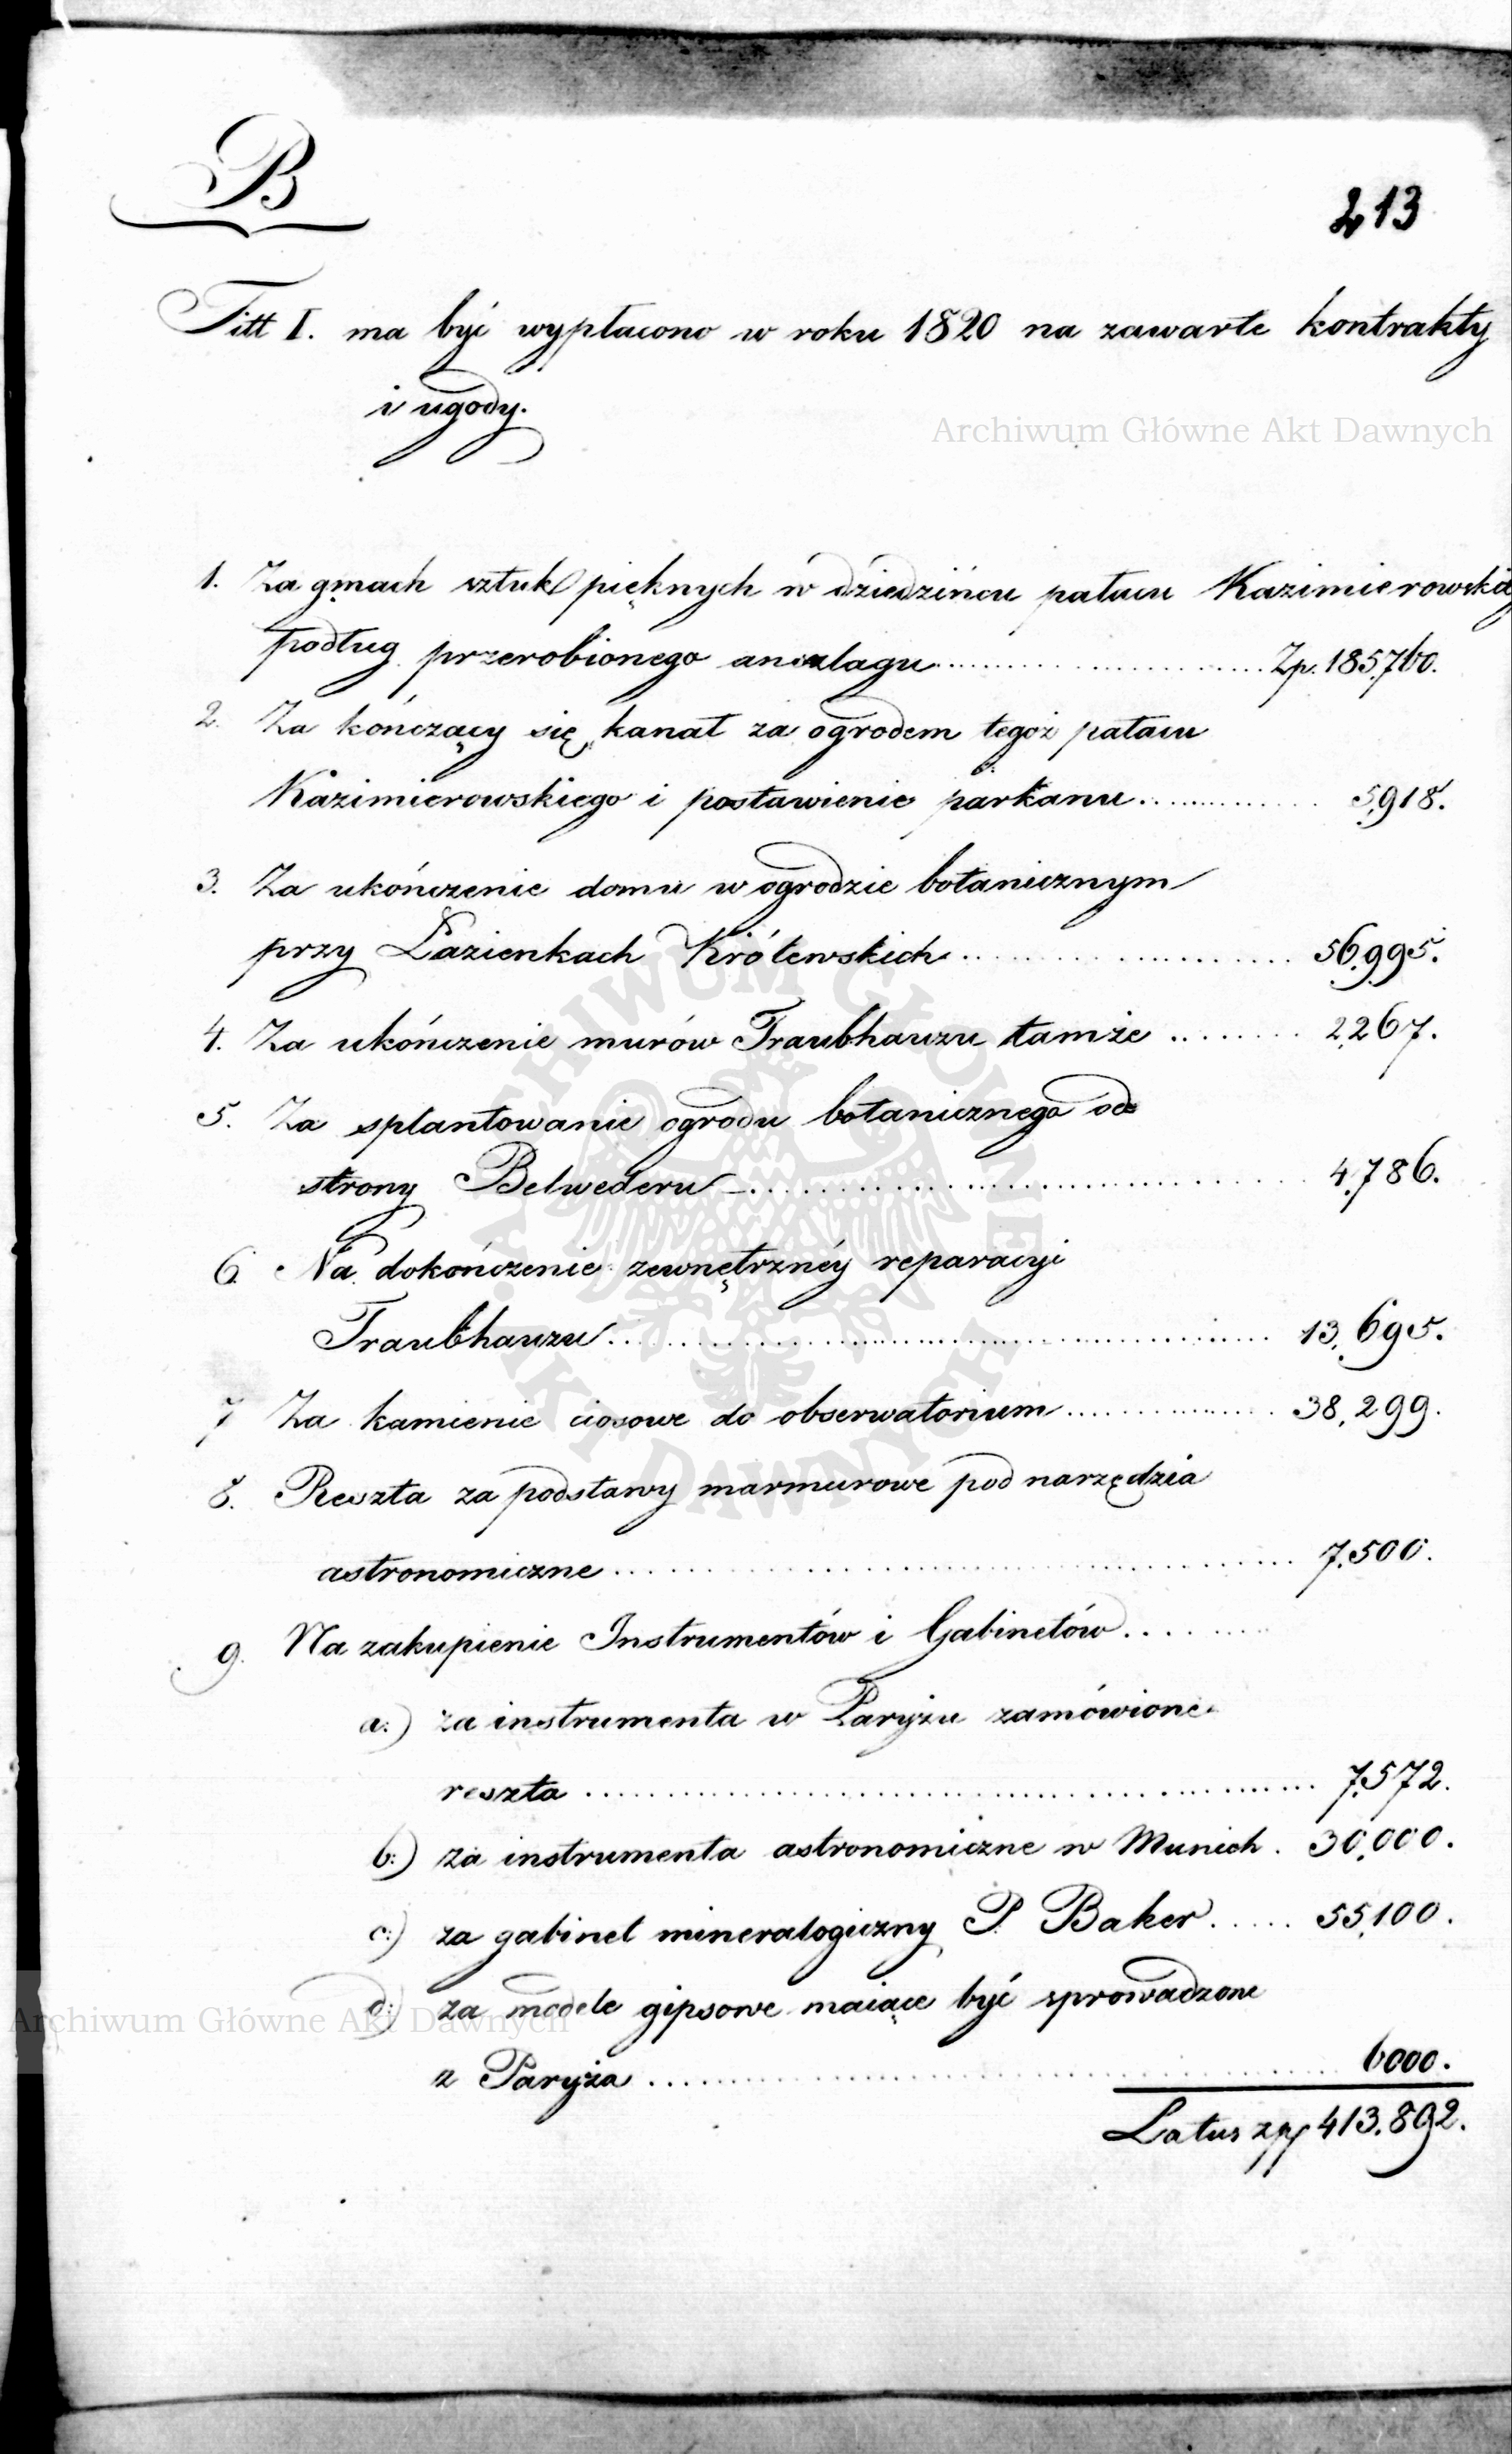 B
213
Titt I. ma być wypłacono w roku 1820 na zawarte kontrakty
i ugody.
Archiwum Główne Akt Dawnych
1. Za gmach sztuk pięknych w dziedzińcu pałacu Kazimierowskieg
podług przerobionego anszlagu .......... Zp. 185,760.
2. Za kończący się kanał za ogrodem tegoż pałacu
Kazimierowskiego i postawienie parkanu .......... 5,918.
3. Za ukończenie domu w ogrodzie botanicznym
przy Łazienkach Królewskich .......... 56,995.
4. Za ukończenie murów Traubhauzu tamże .......... 2,267.
5. Za splantowanie ogrodu botanicznego od
strony Belwederu .......... 4,786.
6. Na dokończenie zewnętrznéy reparacyi
Traubhauzu .......... 13,695.
7 Za kamienie ciosowe do obserwatorium .......... 38,299.
8. Reszta za podstawy marmurowe pod narzędzia
astronomiczne .......... 7,500.
9. Na zakupienie Instrumentów i Gabinetów ..........
a:) za instrumenta w Paryżu zamówione
reszta .......... 7,572.
b:) za instrumenta astronomiczne w Munich . 30,000.
c:) za gabinet mineralogiczny P. Baker ..... 55,100.
d:) za modele gipsowe maiące być sprowadzone
Archiwum Główne Akt Dawnych
z Paryża .......... 6000.
Latus zp 413.892.
ARCHIWUM GŁÓWNE AKT DAWNYCH